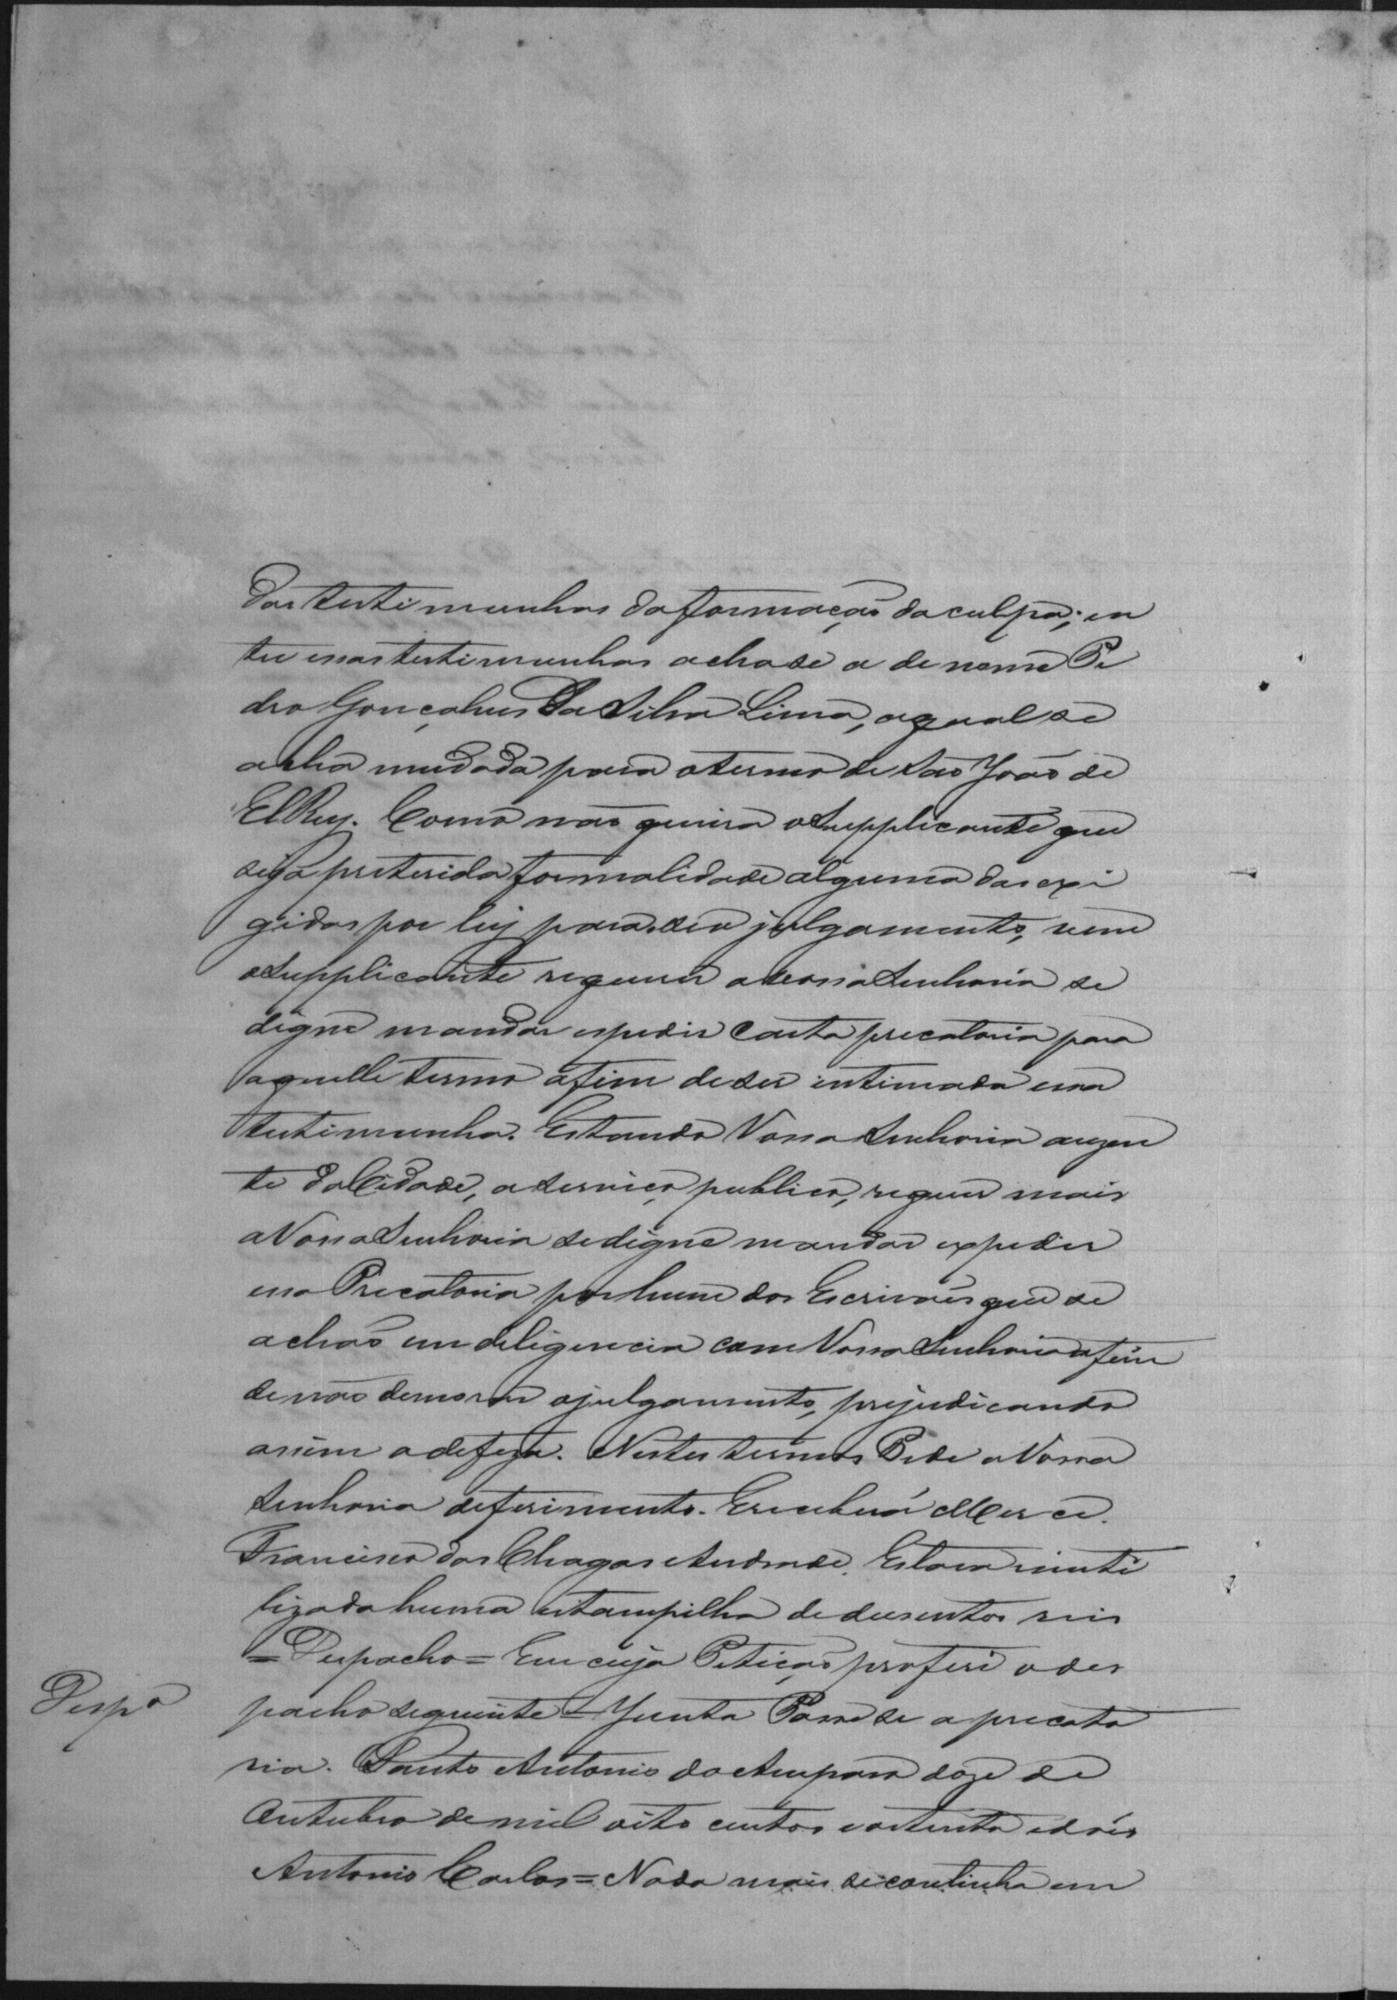 das testimunhas da formação da culpa; en
tre essas testimunhas acha se a de nome Pe
dro Gonçalves da Silva Lima, a qual se
acha mudada para o termo de São João de
El Rey. Como não queira o Supplicante que
seja preterida formalidade alguma das exi
gidas por lei para seo julgamento, vem
o Supplicante requerer a Vossa Senhoria se
digne mandar espedir Carta precatoria para
aquelle termo afim de ser intimada essa
testimunha. Estando Vossa Senhoria auzen
te da Cidade, a serviço publico, requer mais
a Vossa Senhoria se digne mandar expedir
essa Precatoria por hum dos Escrivães que se
achão em deligencia com Vossa Senhoria afim
de não demorar o julgamento, prejudicando
assim a defeza. Nestes termos Pede a Vossa
Senhoria deferimento. E receberá Merce.
Francisco das Chagas Andrade. Estava inuti
lizada huma estampilha de dusentos reis
= Despacho = Em cuja Petição proferi o des
Despo
pacho seguinte = Junta Passe se a precato
ria. Santo Antonio do Amparo doze de
Outubro de mil oito centos e oitenta e dois
Antonio Carlos = Nada mais se continha em